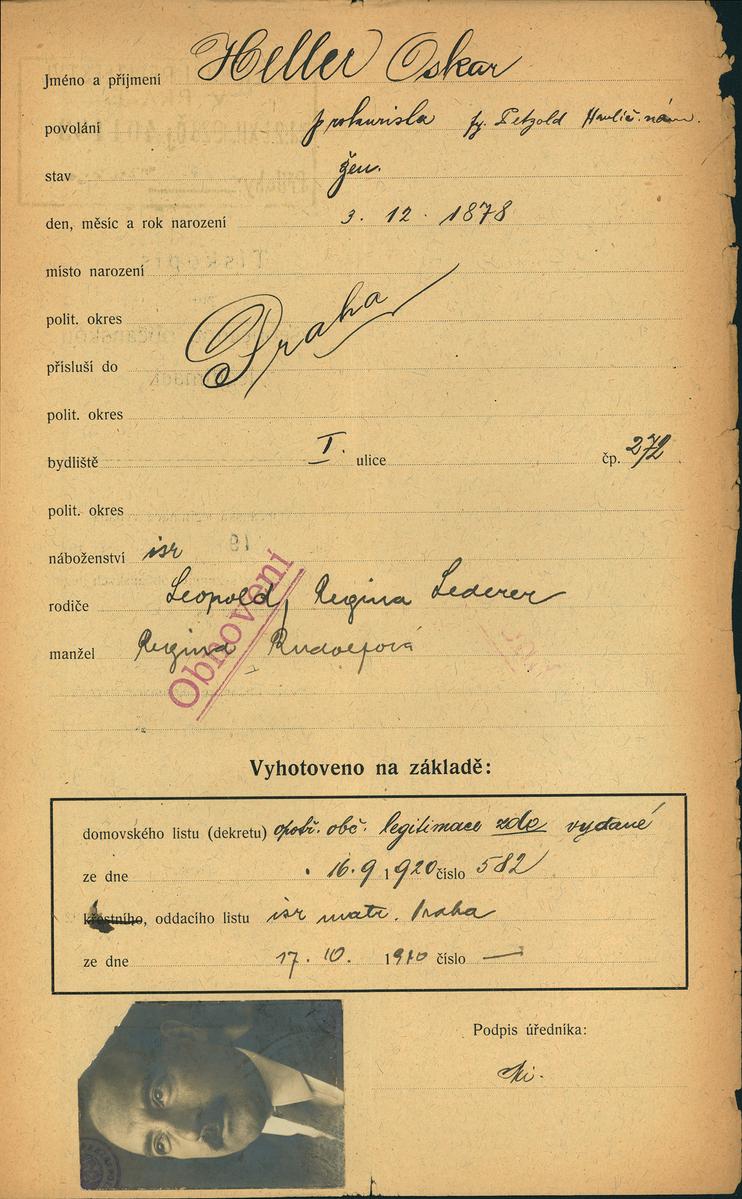 Jméno a příjmení Heller Oskar
povolání prokurista fy. Petzold Havlíč. nám.
stav žen.
den, měsíc a rok narození 3. 12. 1878
místo narození
polit. okres Praha
přísluší do
polit. okres
bydliště I. ulice čp. 272
polit. okres
náboženství isr
rodiče Leopold, Regina Lederer
manžel Regina Rudolfová
Obnovení
Vyhotoveno na základě:
domovského listu (dekretu) opotř. obč. legitimace zde vydané
ze dne 16. 9 1920 číslo 582
křestního, oddacího listu isr matr. Praha
ze dne 17. 10. 1910 číslo —
Podpis úředníka: